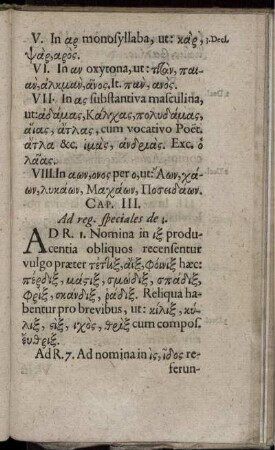 V. In αρ monosyllaba, ut: κὰρ,
3. Decl.
ψὰρ, αρος.
VI. In αν oxytona, ut: τιτὰν, παι-
ὰν, ἀλκμὰν, ᾶνος. It. πὰν, ανὸς.
VII. In ας substantiva masculina,
ut: ἀδάμας, Κάλχας, πολυδάμας,
αἴας, ἄτλας, cum vocativo Poët.
ἄτλα &c. ἱμὰς, ἀνδριὰς. Exc. ὁ
λᾶας.
VIII. In αων, ονος per ο, ut: Ἄων, χά-
ων, λυκάων, Μαχάων, Ποσειδάων.
CAP. III.
Ad reg. speciales de ι.
AD R. 1. Nomina in ιξ produ-
centia obliquos recensentur
vulgo præter τέτλιξ, ἀῒξ, φοίνιξ hæc:
πέρδιξ, μάστιξ, σμῶδιξ, σπάδιξ,
φρὶξ, σκάνδιξ, ράδιξ. Reliqua ha-
bentur pro brevibus, ut: κίλιξ, κύ-
λιξ, ςὶξ, ςιχὸς, θρὶξ cum compos.
εὔθριξ.
Ad R. 7. Ad nomina in ὶς, ῖδος re-
ferun-